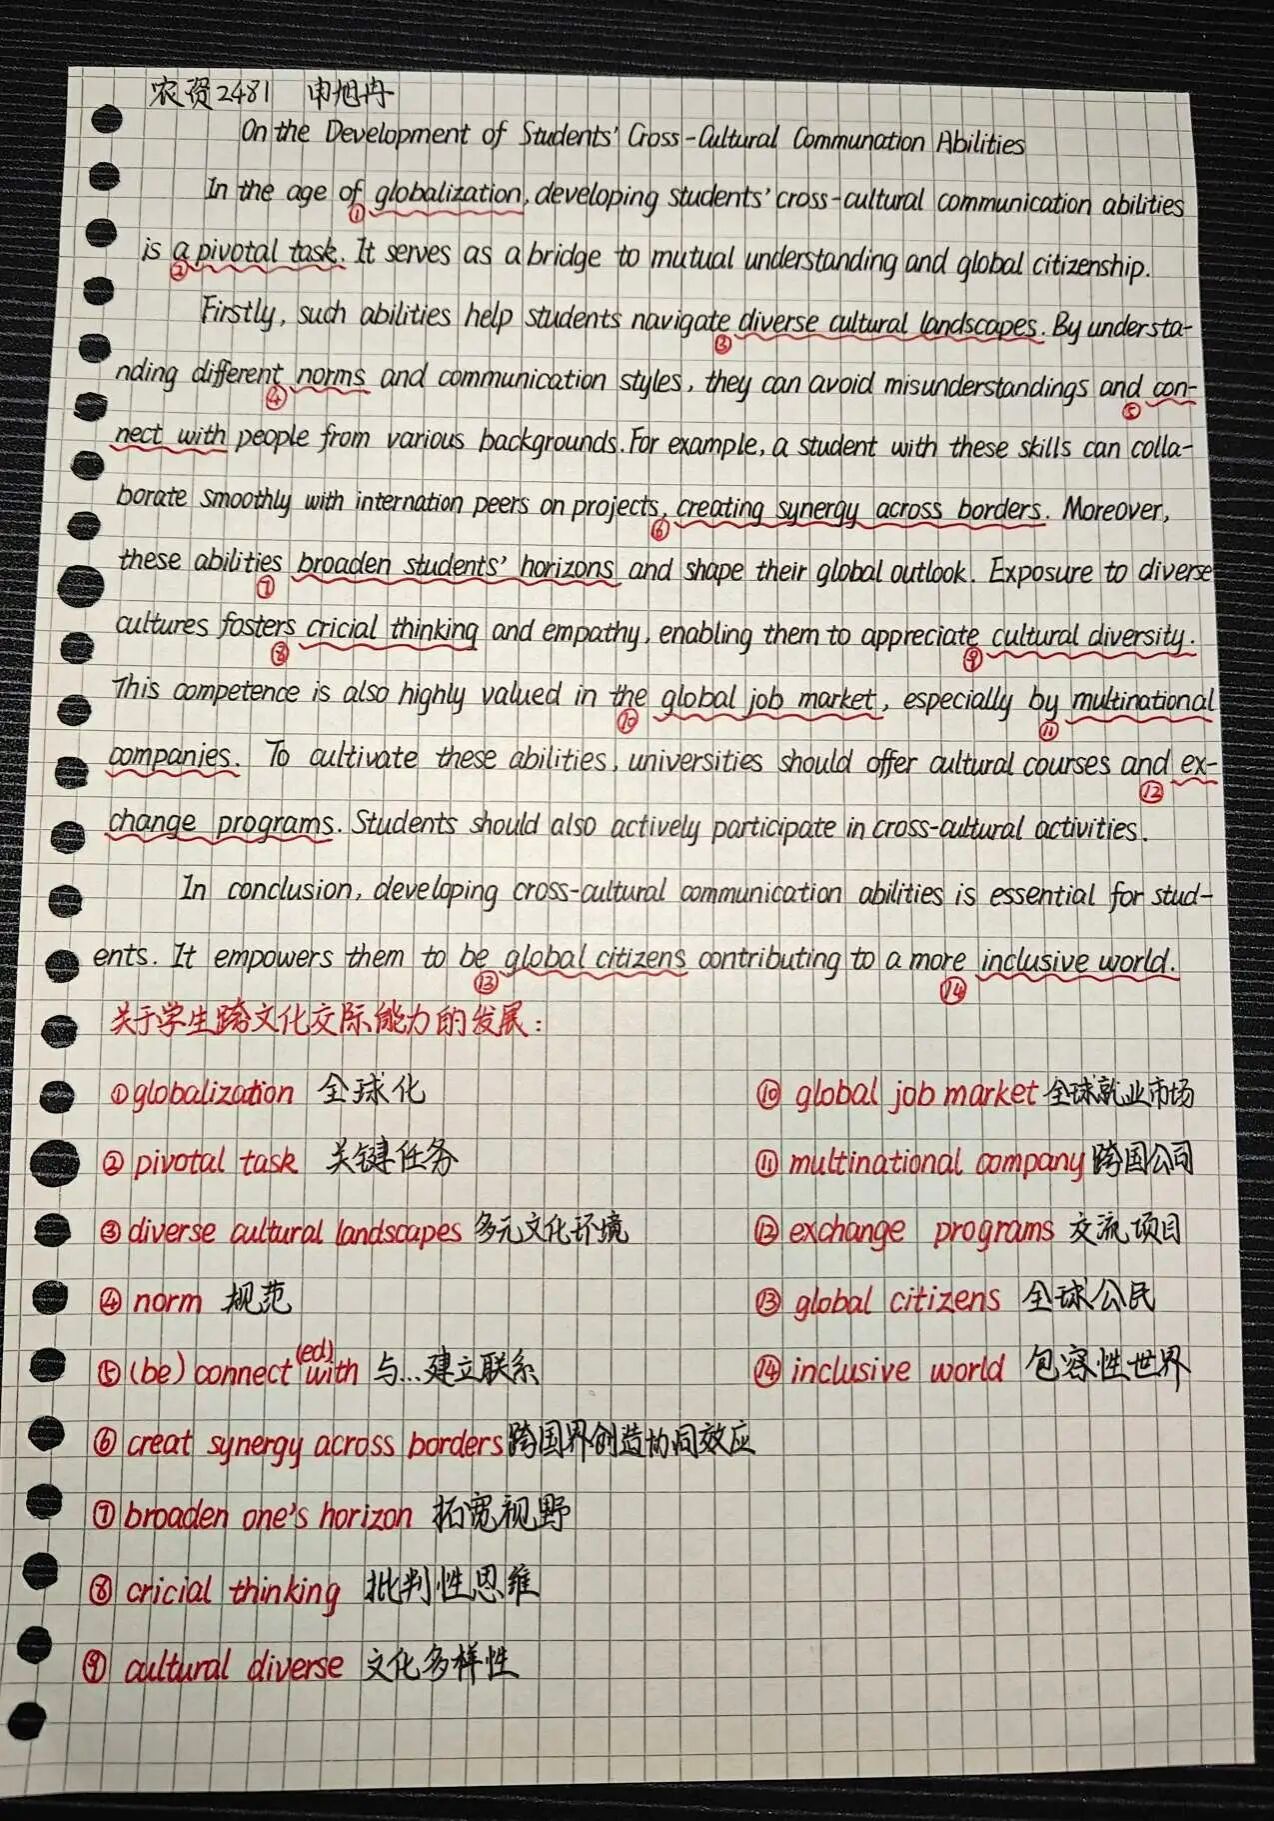 农资2481 申旭冉
On the Development of Students' Cross-Cultural Communation Abilities
In the age of globalization, developing students' cross-cultural communication abilities
①
is a pivotal task. It serves as a bridge to mutual understanding and global citizenship.
②
Firstly, such abilities help students navigate diverse cultural landscapes. By understa-
③
nding different norms and communication styles, they can avoid misunderstandings and con-
④ ⑤
nect with people from various backgrounds. For example, a student with these skills can colla-
borate smoothly with internation peers on projects, creating synergy across borders. Moreover,
⑥
these abilities broaden students' horizons and shape their global outlook. Exposure to diverse
⑦
cultures fosters cricial thinking and empathy, enabling them to appreciate cultural diversity.
⑧ ⑨
This competence is also highly valued in the global job market, especially by multinational
⑩ ⑪
companies. To cultivate these abilities, universities should offer cultural courses and ex-
⑫
change programs. Students should also actively participate in cross-cultural activities.
In conclusion, developing cross-cultural communication abilities is essential for stud-
ents. It empowers them to be global citizens contributing to a more inclusive world.
⑬ ⑭
关于学生跨文化交际能力的发展:
① globalization 全球化
② pivotal task 关键任务
③ diverse cultural landscapes 多元文化环境
④ norm 规范
⑤ (be) connect(ed) with 与...建立联系
⑥ creat synergy across borders 跨国界创造协同效应
⑦ broaden one's horizon 拓宽视野
⑧ cricial thinking 批判性思维
⑨ cultural diverse 文化多样性
⑩ global job market 全球就业市场
⑪ multinational company 跨国公司
⑫ exchange programs 交流项目
⑬ global citizens 全球公民
⑭ inclusive world 包容性世界